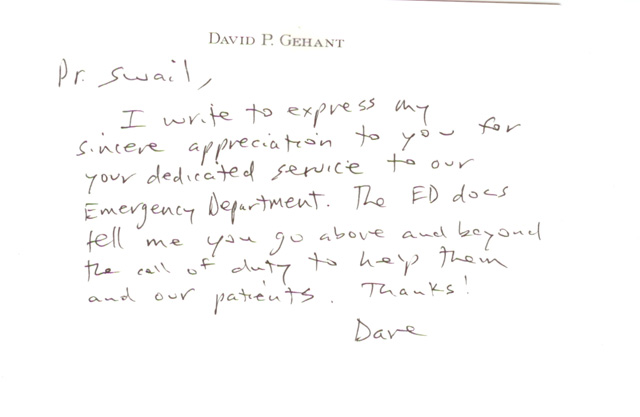 DAVID P. GEHANT
Dr. Swail,
I write to express my
sincere appreciation to you for
your dedicated service to our
Emergency Department. The ED docs
tell me you go above and beyond
the call of duty to help them
and our patients. Thanks!
Dave